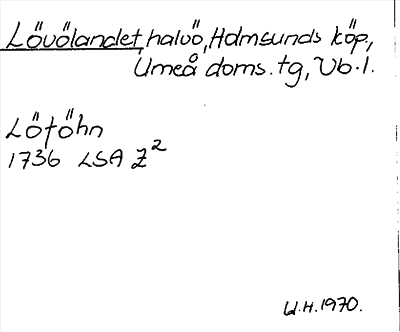 Lövölandet, halvö, Holmsunds köp.,
Umeå doms. tg, Vb. l.
Lötöhn
1736 LSA Z²
U.H. 1970.